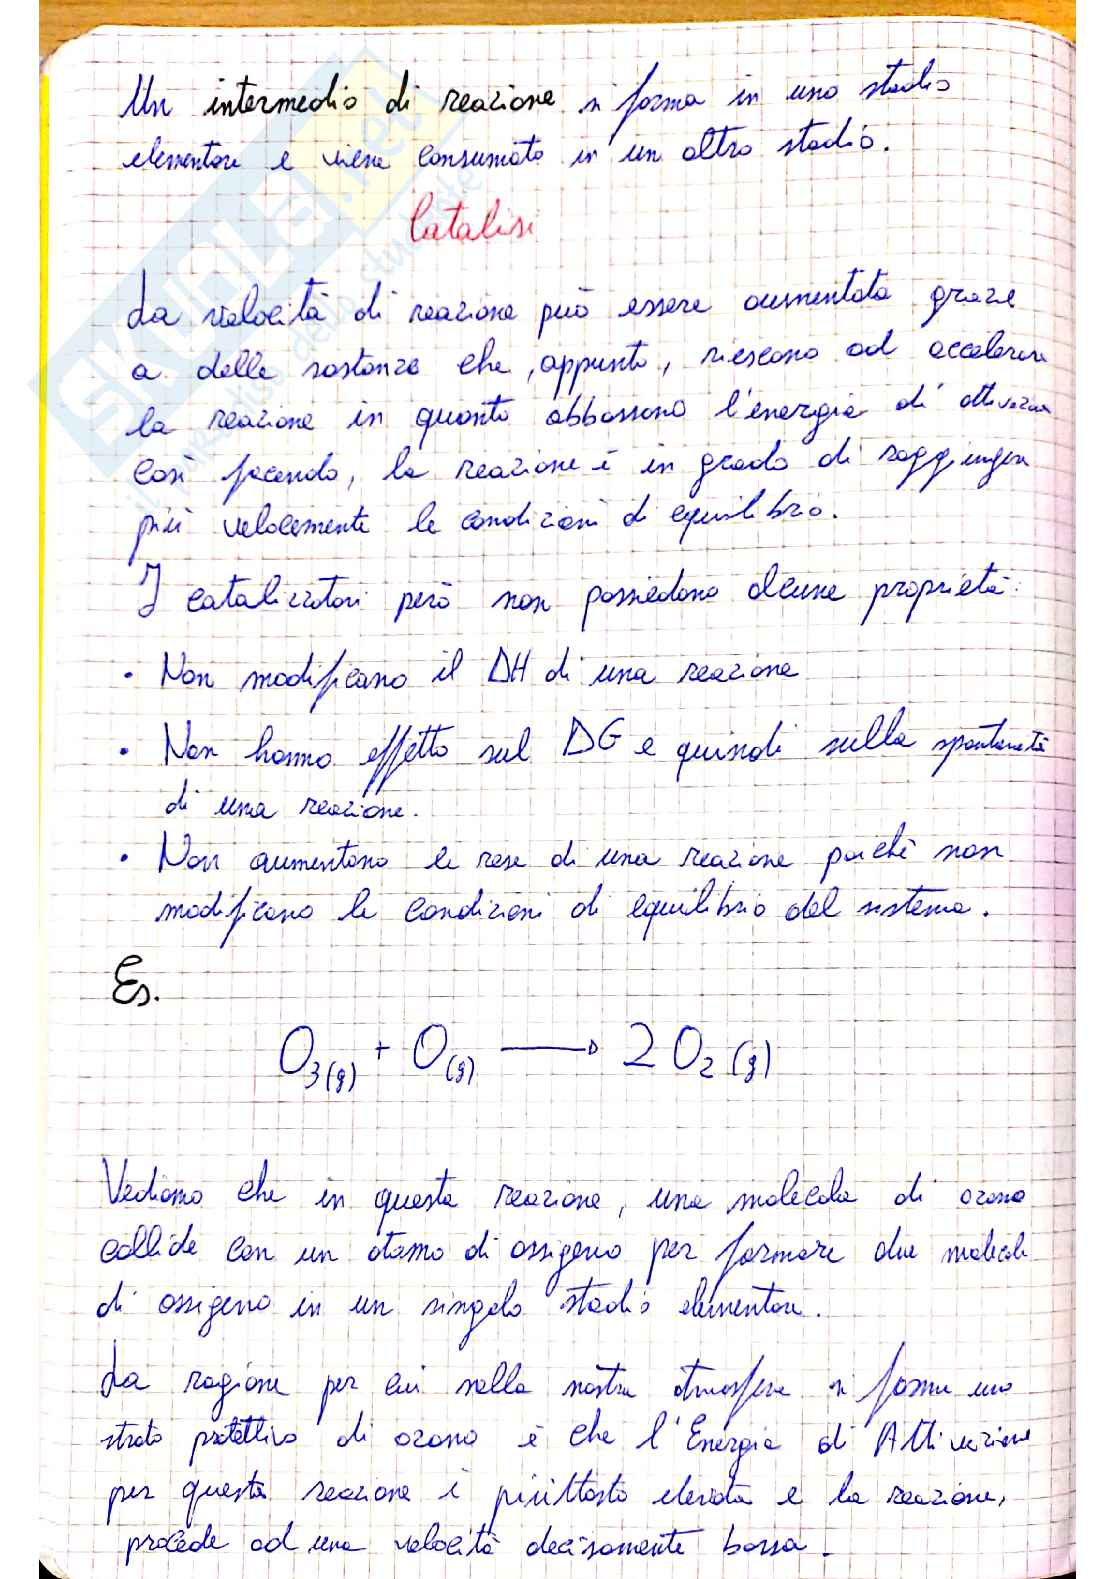 Un intermedio di reazione si forma in uno stadio
elementare e viene consumato in un altro stadio.
Catalisi
La velocità di reazione può essere aumentata grazie
a delle sostanze che, appunto, riescono ad accelerare
la reazione in quanto abbassano l'energia di attivazione
Così facendo, la reazione è in grado di raggiungere
più velocemente le condizioni di equilibrio.
I catalizzatori però non possiedono alcune proprietà:
• Non modificano il ΔH di una reazione
• Non hanno effetto sul ΔG e quindi sulla spontaneità
di una reazione.
• Non aumentano le rese di una reazione poiché non
modificano le condizioni di equilibrio del sistema.
Es.
O3(g) + O(g) → 2 O2 (g)
Vediamo che in questa reazione, una molecola di ozono
collide con un atomo di ossigeno per formare due molecole
di ossigeno in un singolo stadio elementare.
La ragione per cui nella nostra atmosfera si forma uno
strato protettivo di ozono è che l'Energia di Attivazione
per questa reazione è piuttosto elevata e la reazione,
procede ad una velocità decisamente bassa.